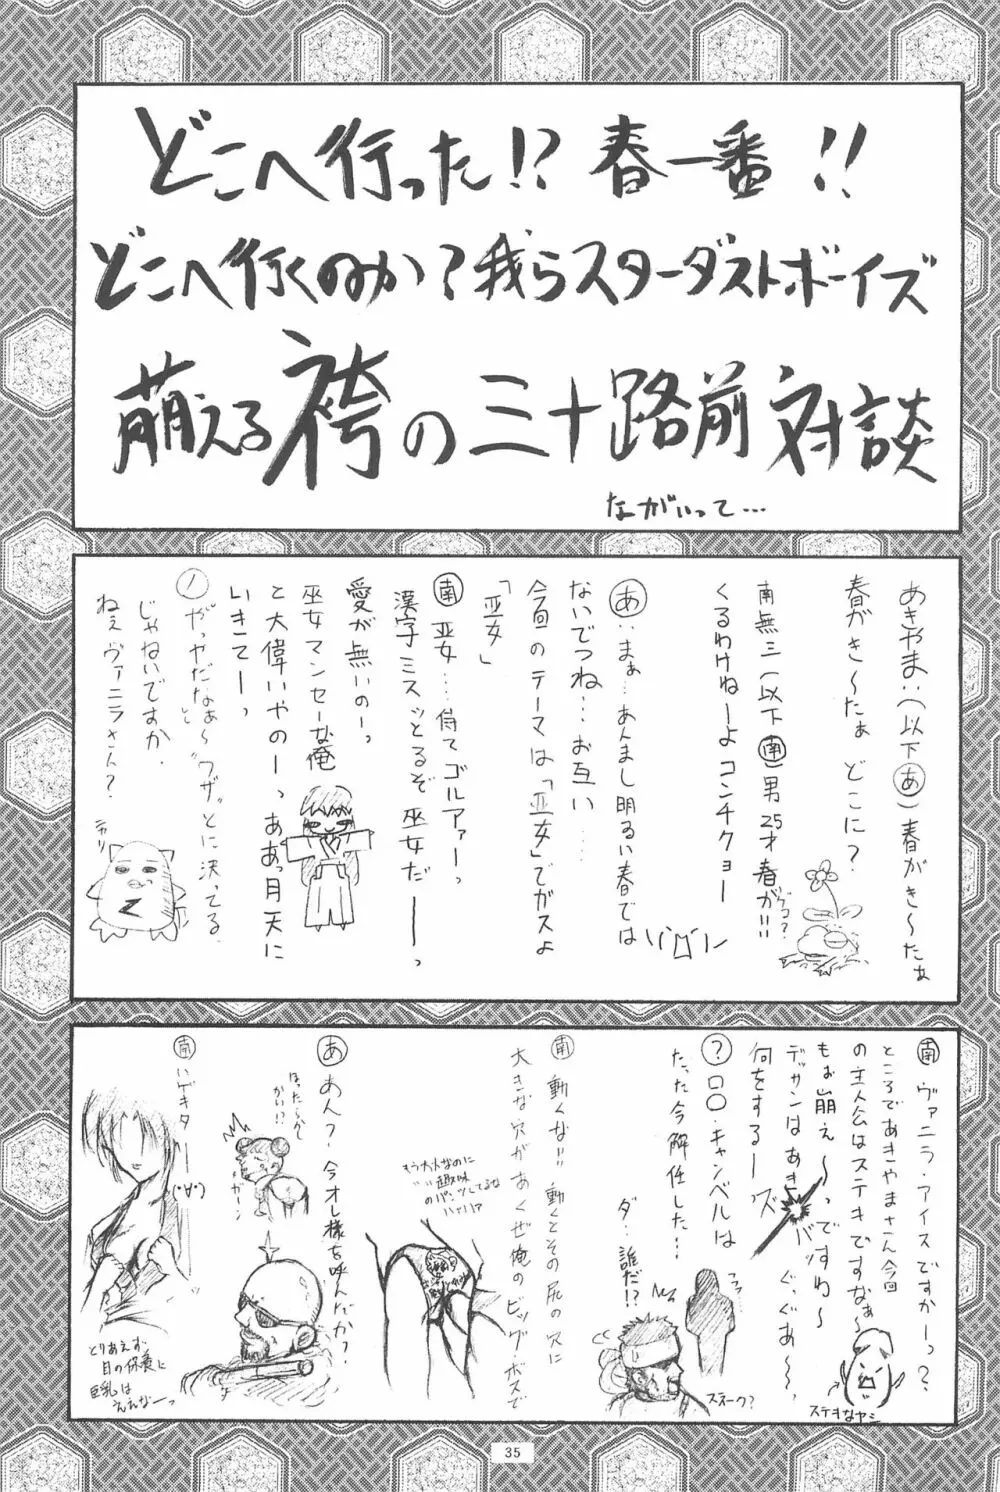 どこへ行った!? 春一番!!
どこへ行くのか?我らスターダストボーイズ
萠える袴の三十路前対談
ながいって…
あきやま(以下あ)春がき〜たぁ
春がき〜たぁ どこに?
南無三(以下南)男25才春が!!
くるわけねーよコンチクョー
ゲコ?
あ…まぁ…あんまし明るい春では
ないでつね…お互い……
今回のテーマは「亚女」でガスよ
「亚女」
南 亚女…待てゴルアァーっ
漢字ミスッとるぞ巫女だーーっ
愛が無いのーっ
巫女マンセーな俺
と大偉いやのーっ ああっ月天に
いきてーっ
ノ やっやだなぁ〜"ワザ"とに決ってる
じゃないですか.
ねぇヴァニラさん?
ニカリ
南 ヴァニラ・アイスですかーっ?
ところであきやまさん今回
の主人公はステキですなぁ〜
もぉ崩え〜っですわ〜
デッサンはあき
バッ
ぐっぐあ〜っ
何をするーーズ
ステキなヤシ
? ロロ・キャンベルは
たった今解任した…
ダ…誰だ!?
スネーク?
南 動くな!!! 動くとその尻の穴に
大きな穴があくぜ俺のビッグボスで
もう大人なのに
趣味
のパンツしてるな
ハァハァ
あ あん?今オレ様を呼んだかっ?
ほったらかし
かい!?
ガーン
南 いゲキター
(°∀°)
とりあえず
目の保養に
巨乳は
ええなーっ
35